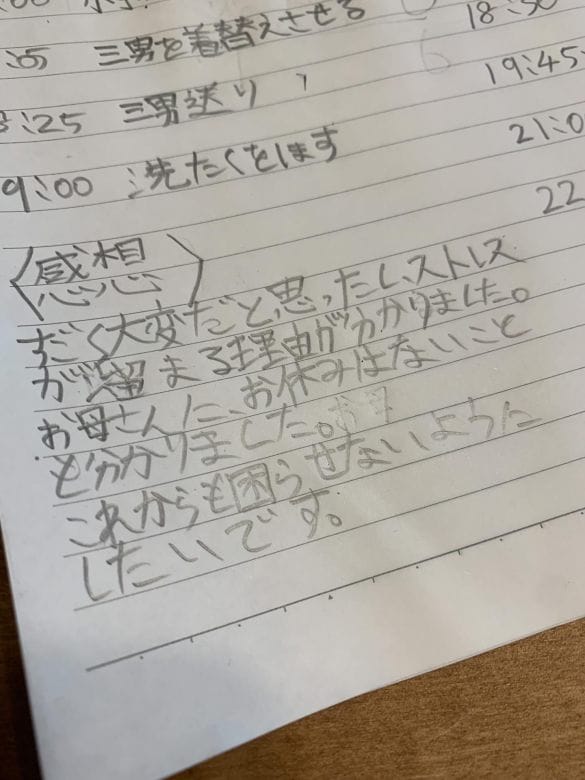 :05 三男を着替えさせる
18:50
8:25 三男送り
19:45
9:00 洗たくをします
21:0
22
〈感想〉
すごく大変だと思ったし、ストレス
が溜まる理由が分かりました。
お母さんに、お休みはないこと
が分かりました。
これからも困らせないように
したいです。